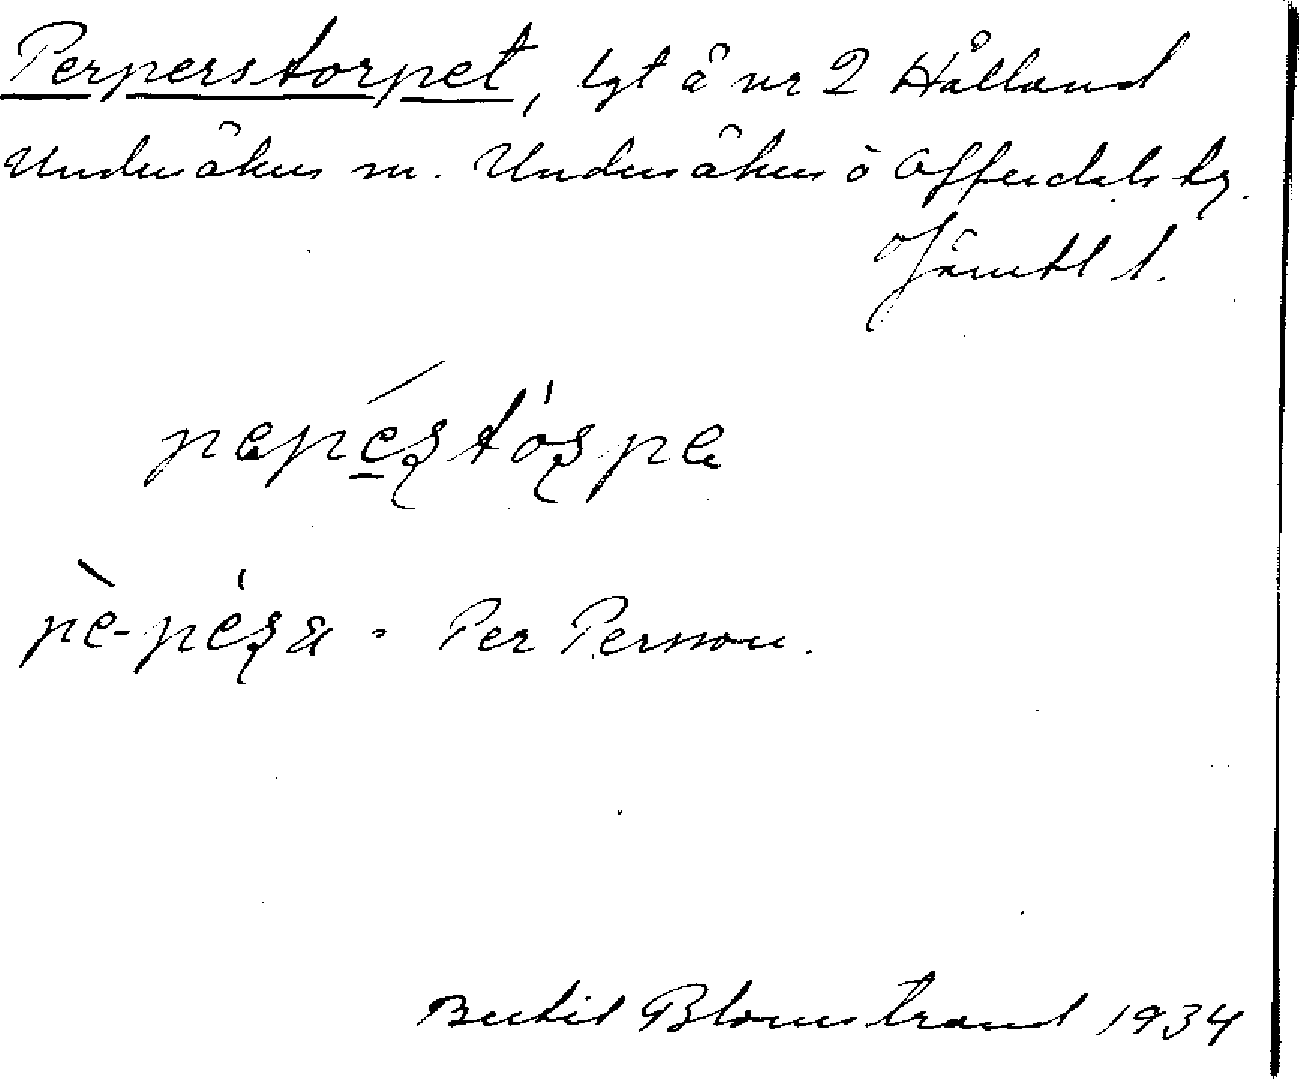 Perperstorpet, lgt å nr 2 Hålland
Undersåkers sn. Undersåkers o Offerdals tg.
Jämtl l.
pepéstórpe
pè-pésa = Per Persson.
Bertil Blomstrand 1934